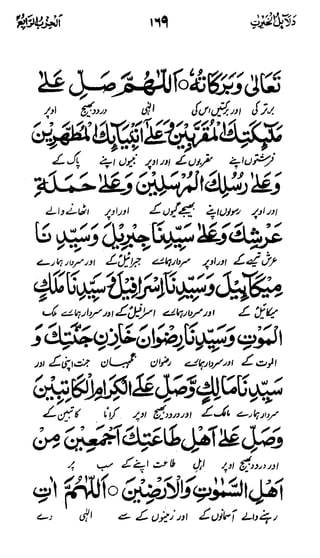 دلائل الخیرات ١٦٩ الحزب الرابع
تَعَالٰى وَبَرَكَاتُهٗ ○ اَللّٰهُمَّ صَلِّ عَلٰى
برتر کی اور برکتیں اس کی الٰہی درود بھیج اوپر
مَلٰٓئِكَتِكَ الْمُقَرَّبِيْنَ وَعَلٰٓى اَنْبِيَآئِكَ الْمُطَهَّرِيْنَ
فرشتوں اپنے مقربوں کے اور اوپر نبیوں اپنے پاک کے
وَعَلٰى رُسُلِكَ الْمُرْسَلِيْنَ وَعَلٰى حَمَلَةِ
اور اوپر رسولوں اپنے بھیجے گیوں کے اور اوپر اٹھانے والے
عَرْشِكَ وَعَلٰى سَيِّدِنَا جِبْرِيْلَ وَسَيِّدِنَا
عرش تیرے کے اور اوپر سردار ہمارے جبرائیل کے اور سردار ہمارے
مِيْكَآئِيْلَ وَسَيِّدِنَا اِسْرَافِيْلَ وَسَيِّدِنَا مَلَكِ
میکائیل کے اور سردار ہمارے اسرافیل کے اور سردار ہمارے ملک
الْمَوْتِ وَسَيِّدِنَا رِضْوَانَ خَازِنِ جَنَّتِكَ وَ
الموت کے اور سردار ہمارے رضوان نگہبان جنت اپنی کے اور
سَيِّدِنَا مَالِكٍ وَّصَلِّ عَلَى الْكِرَامِ الْكَاتِبِيْنَ
سردار ہمارے مالک کے اور درود بھیج اوپر کراماً کاتبین کے
وَصَلِّ عَلٰٓى اَهْلِ طَاعَتِكَ اَجْمَعِيْنَ مِنْ
اور درود بھیج اوپر اہل طاعت اپنے کے سب پر
اَهْلِ السَّمٰوٰتِ وَالْاَرَضِيْنَ ○ اَللّٰهُمَّ اٰتِ
رہنے والے آسمانوں کے اور زمینوں کے سے الٰہی دے